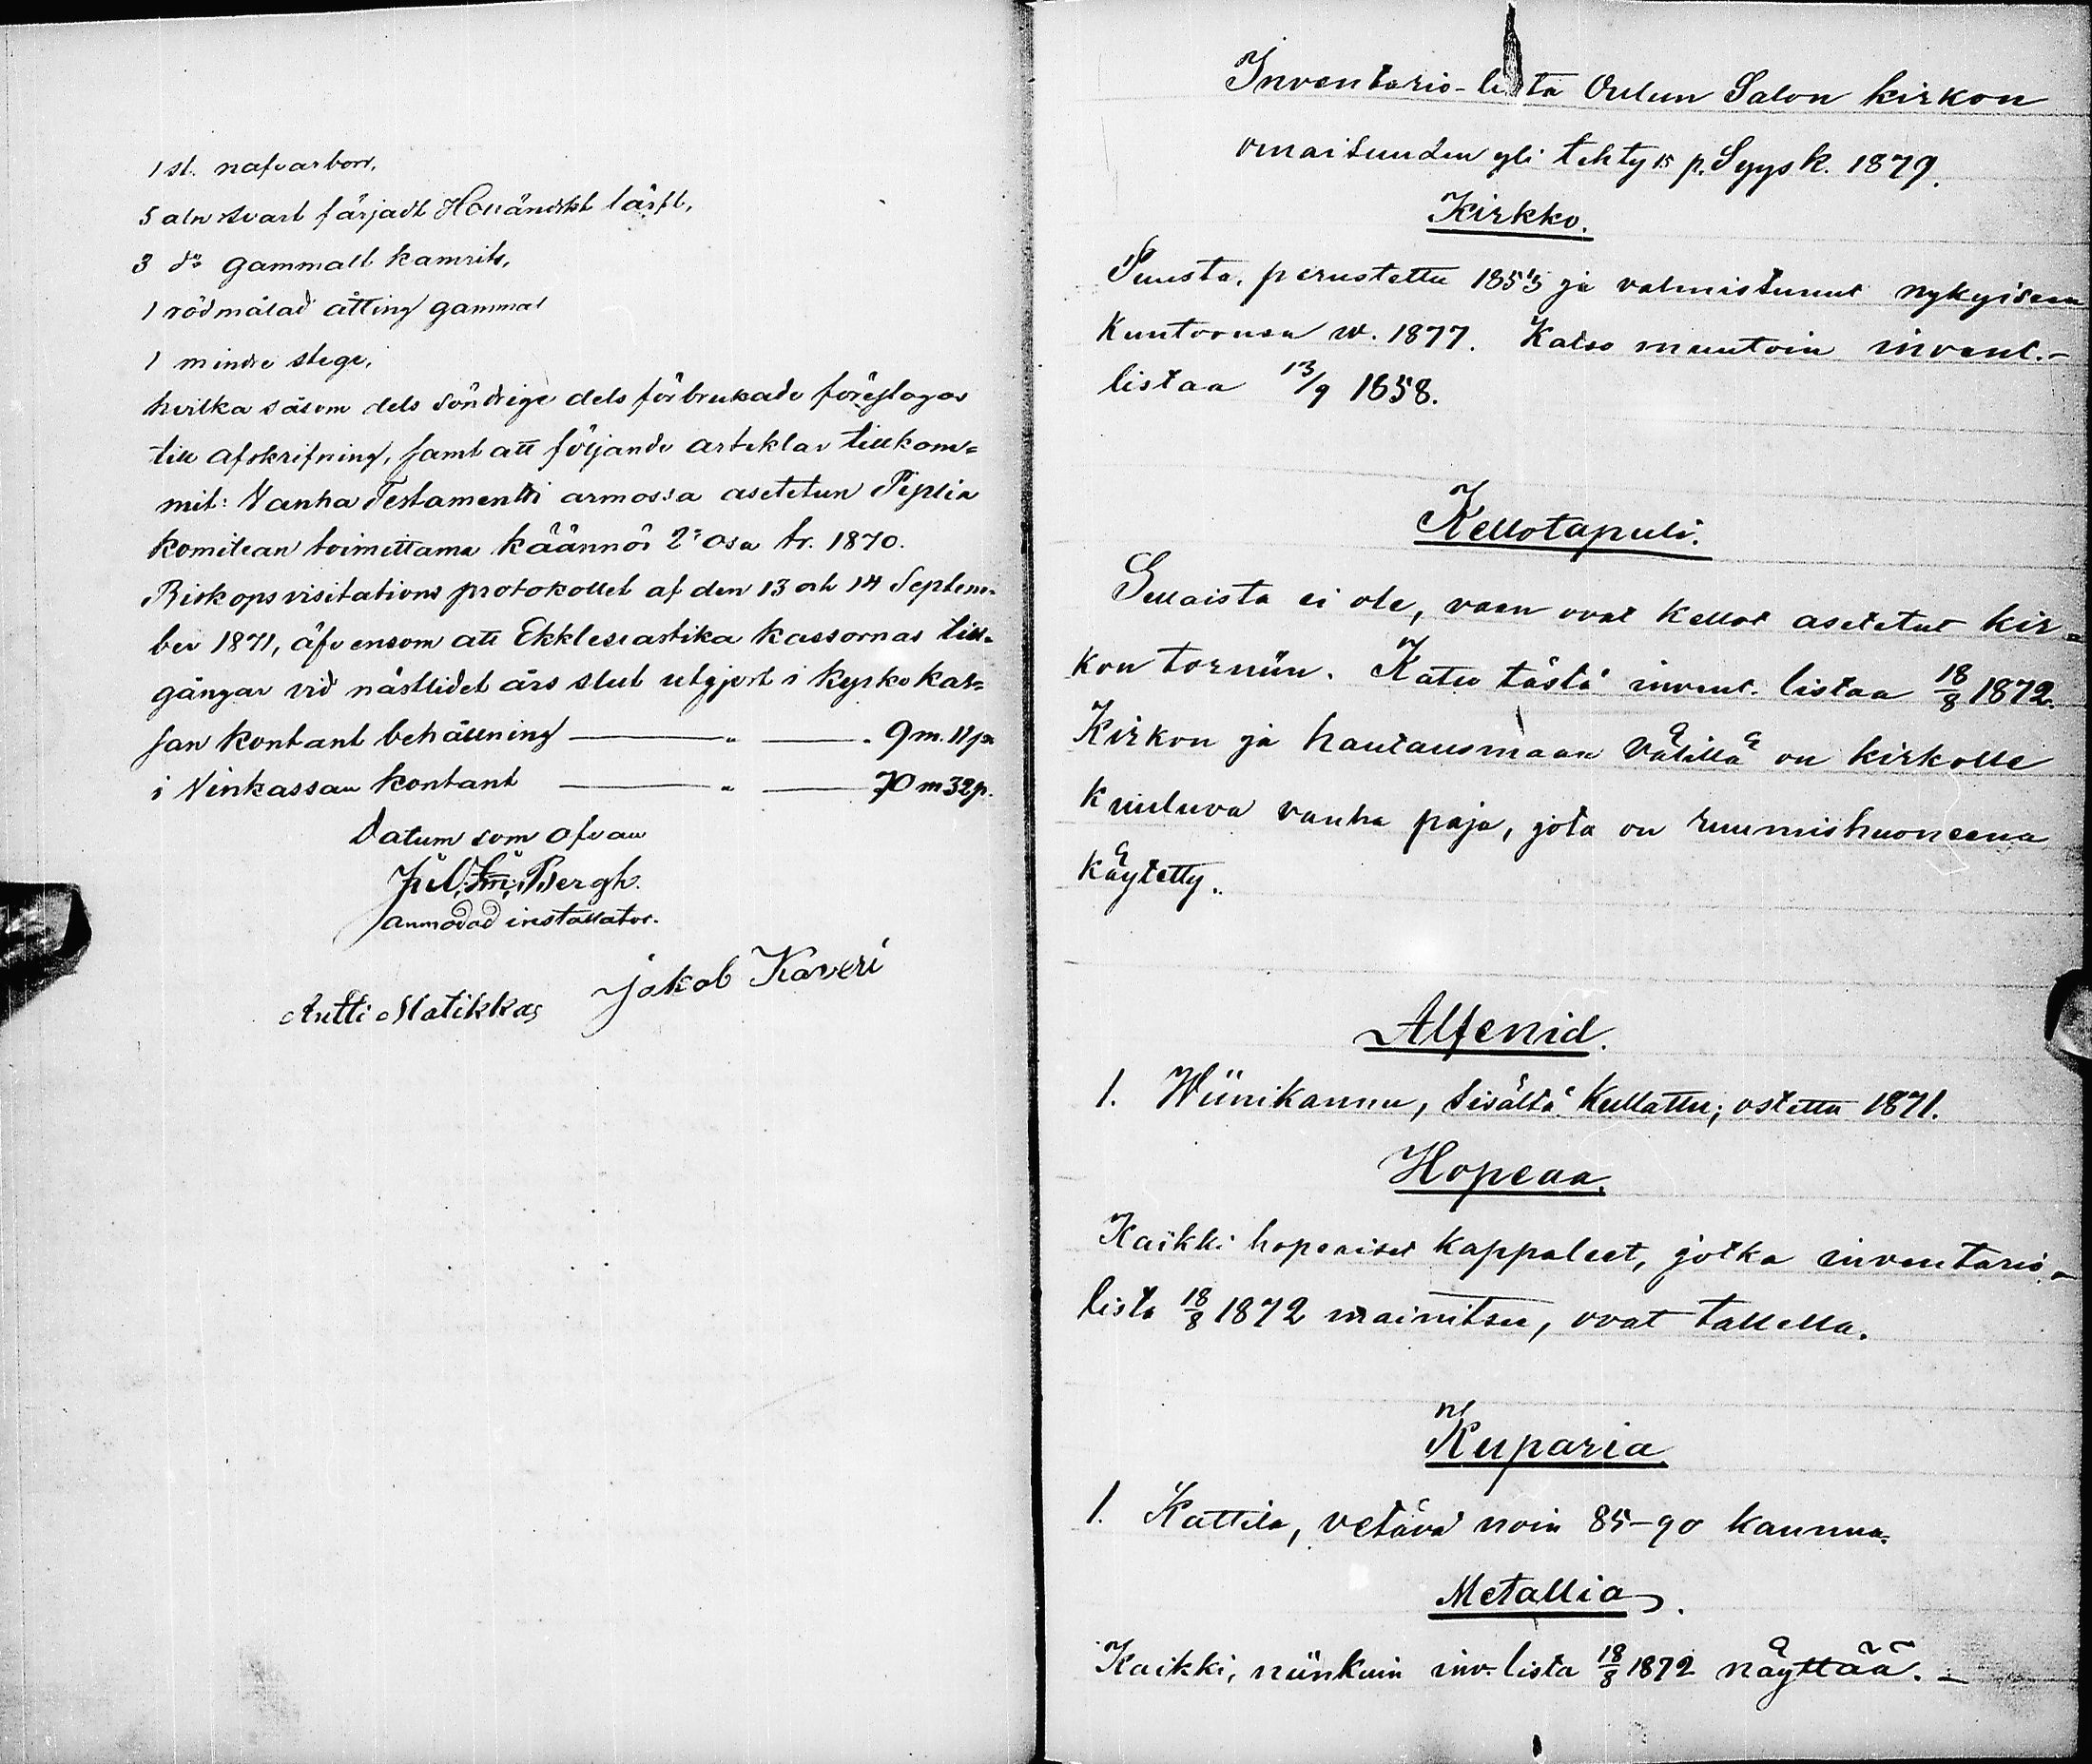 1 st. nafvarborr,
5 aln svart färjadt Holländskt lärft,
3 do gammalt kamrits,
1 rödmålad åtting gammal
1 mindre stege,
hvilka såsom dels söndrige dels förbrukade föreslagos
till afskrifning, samt att följande artiklar tillkom=
mit: Vanha Testamentti armossa asetetun Piplia
komitean toimittama käännös 2:osa tr. 1870.
Biskopsvisitations protokollet af den 13 och 14 Septem-
ber 1871, äfvensom att Ekklesiastika kassornas till-
gångar vid nästlidet års slut utgjort i kyrkokas=
san kontant behållning — „ — 9 m. 11 p.
i Vinkassan kontant — „ — 70 m 32 p.
Datum som ofvan
Bergh.
anmodad installator.
Antti Matikka Jakob Kaveri
Inventario-lista Oulun Salon kirkon
omaisuuden yli tehty 15 p. Syysk. 1879.
Kirkko.
Puusta, perustettu 1853 ja valmistunut nykyiseen
kuntoonsa w. 1877. Katso muutoin invent.-
listaa 13/9 1858.
Kellotapuli.
Sellaista ei ole, vaan ovat kellot asetetut kir=
kon torniin. Katso tästä invent. listaa 18/8 1872.
Kirkon ja hautausmaan välillä on kirkolle
kuuluva vanha paja, jota on ruumishuoneena
käytetty.
Alfenid.
1. Wiinikannu, sisältä kullattu; ostettu 1871.
Hopeaa.
Kaikki hopeaiset kappaleet, jotka inventario-
lista 18/8 1872 mainitsee, ovat tallella.
Kuparia.
1. Kattila, vetävä noin 85-90 kannua.
Metallia.
Kaikki, niinkuin inv. lista 18/8 1872 näyttää. —